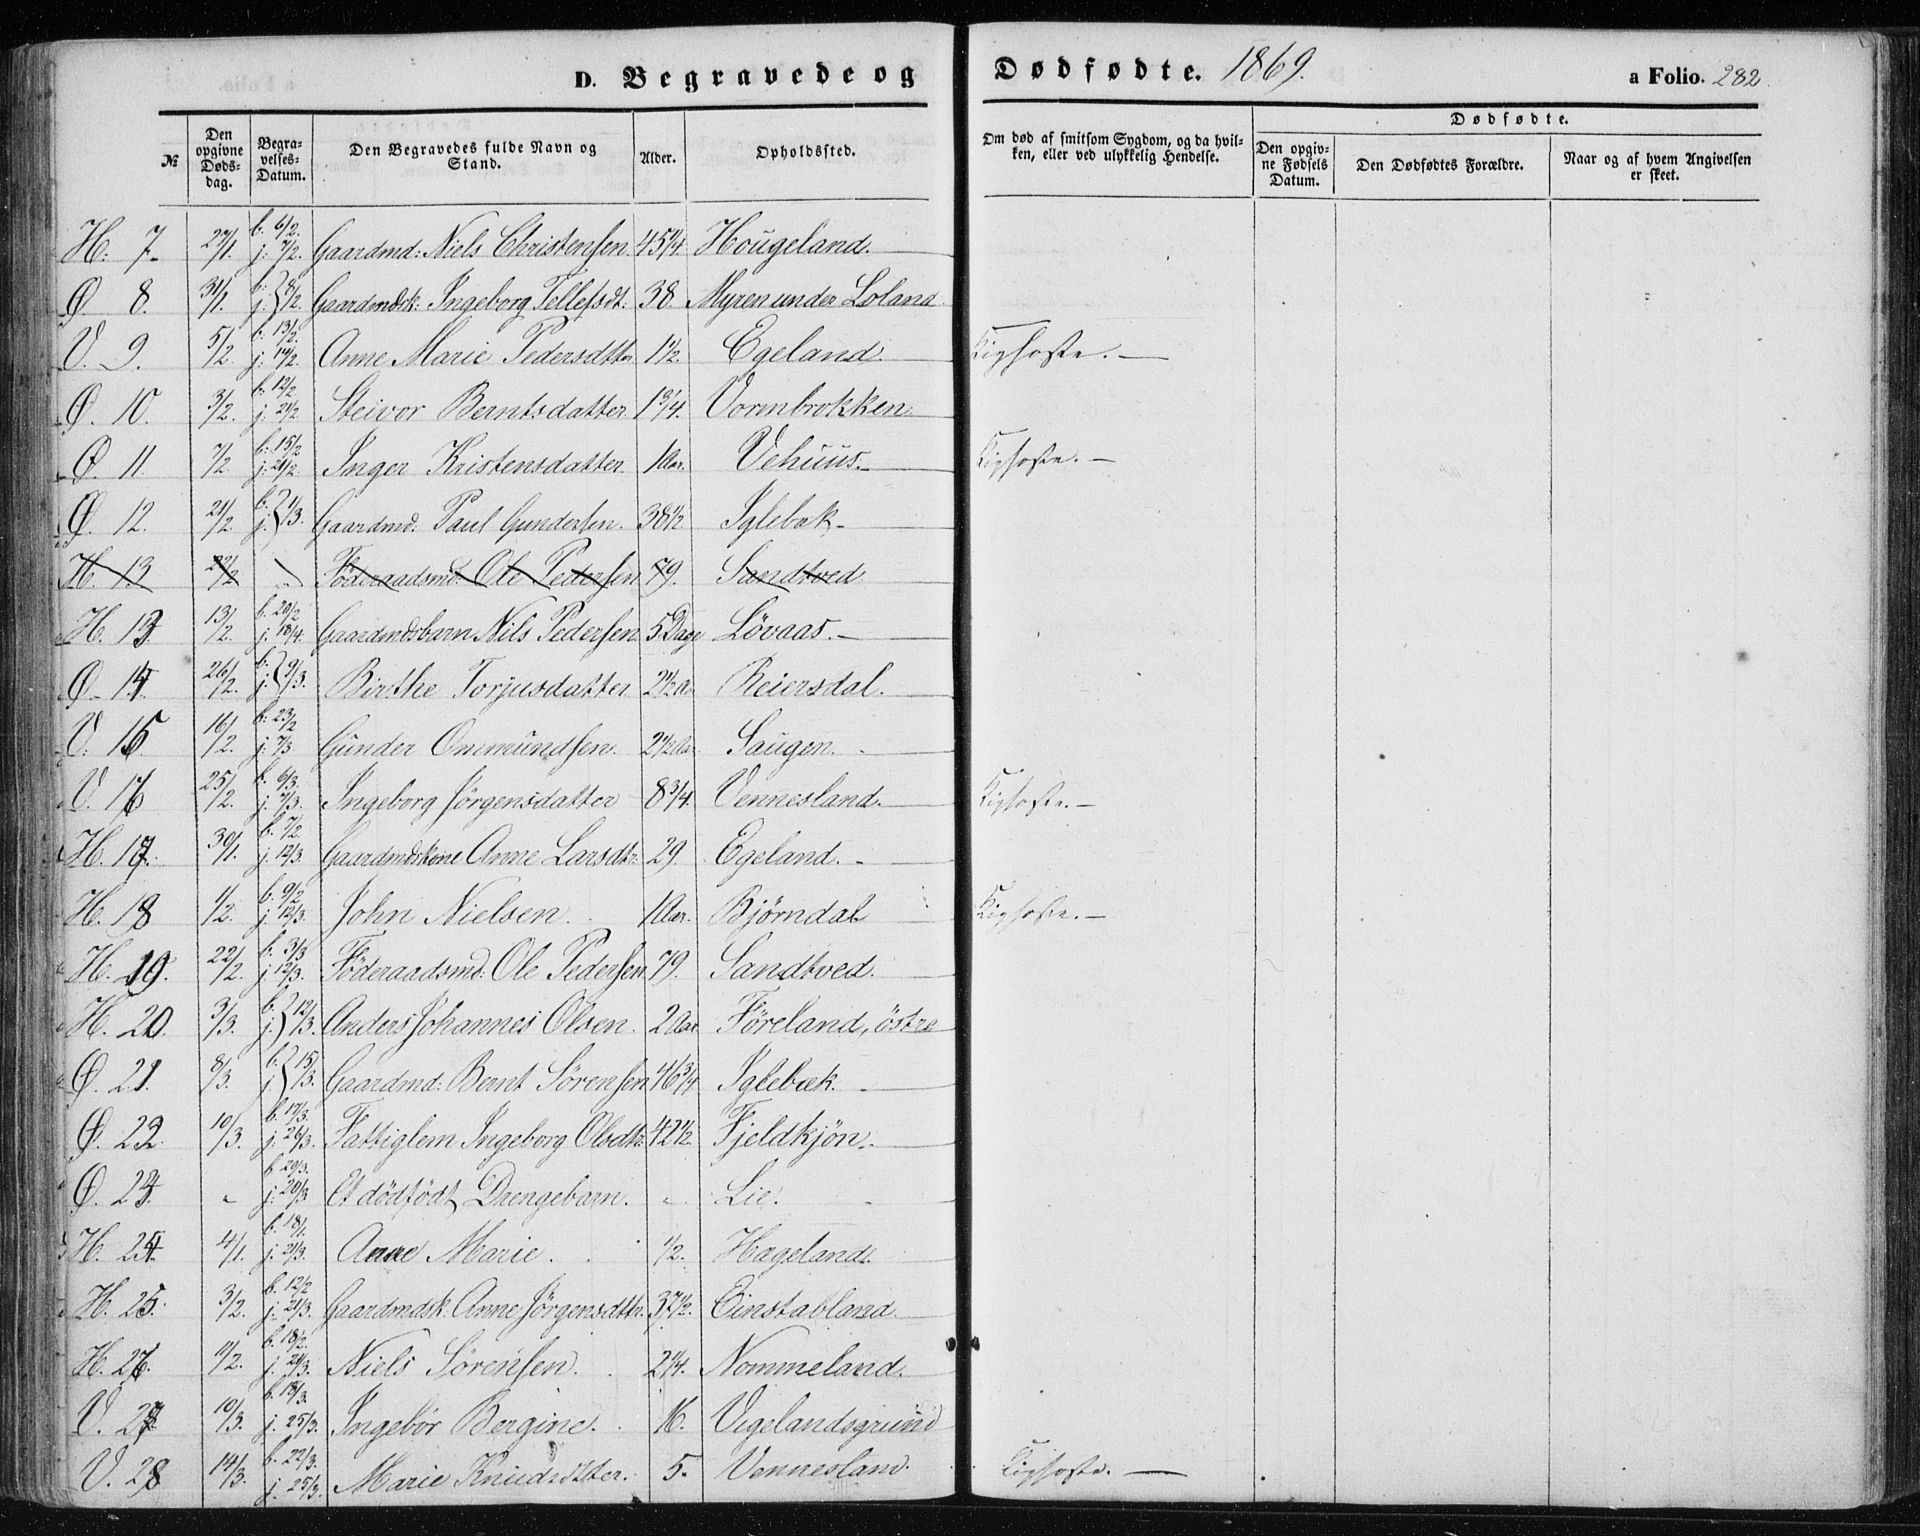 D. Begravede og Dødfødte. 1869. a Folio. 282.
№ | Den opgivne Døds-dag. | Begra-velses-Datum. | Den Begravedes fulde Navn og Stand. | Alder. | Opholdssted. | Om død af smitsom Sygdom, og da hvil-ken, eller ved ulykkelig Hendelse. | Dødfødte. | Den opgiv-ne Fødsels Datum. | Den Dødfødtes Forældre. | Naar og af hvem Angivelsen er skeet.
H. 7. 27/1. b. 6/2. j. 7/2. Gaardmd: Niels Christensen. 45 1/4. Hougeland.
Ø. 8. 31/1 b. j. } 8/2. Gaardmdsk: Ingeborg Tellefsdt: 38 Myren under Loland
V. 9. 5/2 b. 13/2. j. 14/2. Anne Marie Pedersdtter 1 1/2. Egeland. Kighoste.
Ø. 10. 3/2. b. 12/2 j. 21/2. Steivor Berntsdatter 1 3/4. Vormbrokken.
Ø. 11. 7/2. b. 15/2 j. 21/2. Inger Kristensdatter. 1 Aar. Vehuus. Kighoste.
Ø. 12. 21/2. b. j. } 1/3. Gaardmd. Paul Gundersen. 38 1/2 Iglebæk
H. 13 22/2 „ Föderaadsmd. Ole Pedersen 79. Sandtved
H. 13 13/2. b. 20/2 j. 18/4. Gaardmdsbarn Nils Pedersen 5 Dage Lövaas.
Ø. 14. 26/2. b. j. } 9/3. Birthe Torjusdatter 2 1/2 A. Reiersdal.
V. 15 16/2. b. 23/2 j. 7/3. Gunder Ommundsen. 2 1/2 Aar. Saugen.
V. 16 25/2. b. 6/3. j. 7/3. Ingeborg Jörgensdatter 8 3/4. Vennesland. Kighoste.
H. 17. 30/1. b. 7/2. j. 12/3. Gaardmdskone Anne Larsdtr. 29. Egeland.
H. 18 1/2. b. 9/2 j. 12/3. John Nielsen. 1 Aar. Björndal Kighoste.
H. 19. 22/2. b. 3/3 j. 12/3. Föderaadsmd: Ole Pedersen 79. Sandtved.
H. 20. 3/3. b. j. } 12/3. Anders Johannes Olsen. 2 Aar. Föreland, östre
Ø. 21. 8/3. b. j. } 15/3. Gaardmd: Bernt Sörensen 46 3/4 Iglebæk.
Ø. 22. 10/3. b. 17/3. j. 26/3. Fattiglem Ingeborg Olsdtr. 42 1/2. Fjeldkjön.
Ø. 23. „ b. 20/3. j. 20/3 Et dödfödt Drengebarn. „ Lie.
H. 24. 4/1. b. 18/1. j. 21/3. Anne Marie. 1/2. Hægeland.
H. 25. 3/2. b. 12/2 j. 21/3. Gaardmdsk. Anne Jörgensdtr. 37 1/2. Einstabland.
H. 26. 11/2. b. 18/2. j. 21/3. Niels Sörensen. 2 1/4. Nommeland.
V. 27 10/3. b. 18/3. j. 25/3. Ingebör Bergine. 16. Vigelandsgrund
V. 28 14/3. b. 22/3. j. 25/3. Marie Knudsdtter. 5. Vennesland. Kighoste.